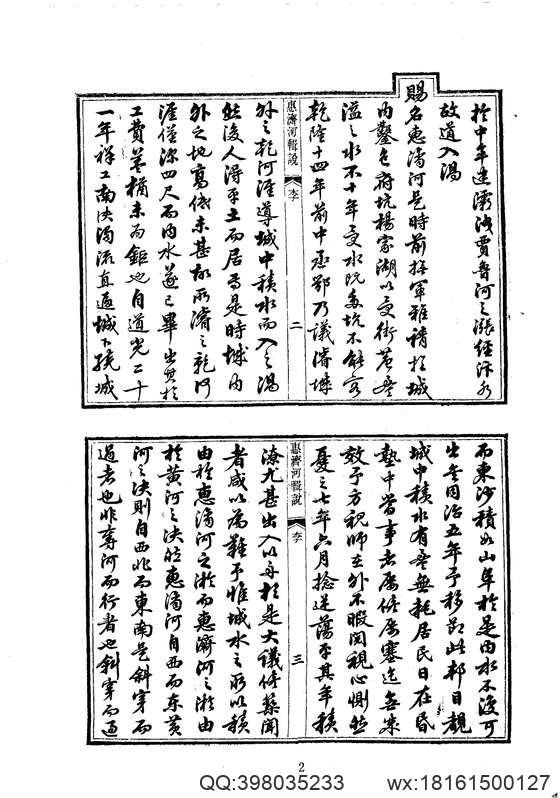 於中牟建瀉洩賈魯河之漲經汴水
故道入渦
賜名惠濟河是時前撫軍雅請於城
內鑿各府坑楊家湖以受街巷
溢之水不十年受水既多坑不能容
乾隆十四年前中丞鄂乃議濬壕
惠濟河輯說
李
二
外之乾河涯導城中積水而入之渦
然後人得平土而居焉是時城內
外之地高低未甚故所濬之乾河
涯僅深四尺而內水遂已畢出其於
工費蓋猶未為鉅也自道光二十
一年祥工南決濁流直逼城下繞城
而東沙積如山阜於是內水不復可
出矣同治五年予移節此邦目覩
城中積水有無耗居民日在昏
墊中當事者屢修屢塞迄無成
效予方視師在外不暇閱視心惻然
憂之七年六月捻逆蕩平其年積
惠濟河輯說
李
三
潦尤甚出入以舟於是大議修築聞
者咸以為難予惟城水之所以積
由於惠濟河之淤而惠濟河之淤由
於黃河之決然惠濟河自西而東黃
河之決則自西北而東南是斜穿而
過者也非奪河而行者也斜穿而過
2
QQ:398035233
wx:18161500127